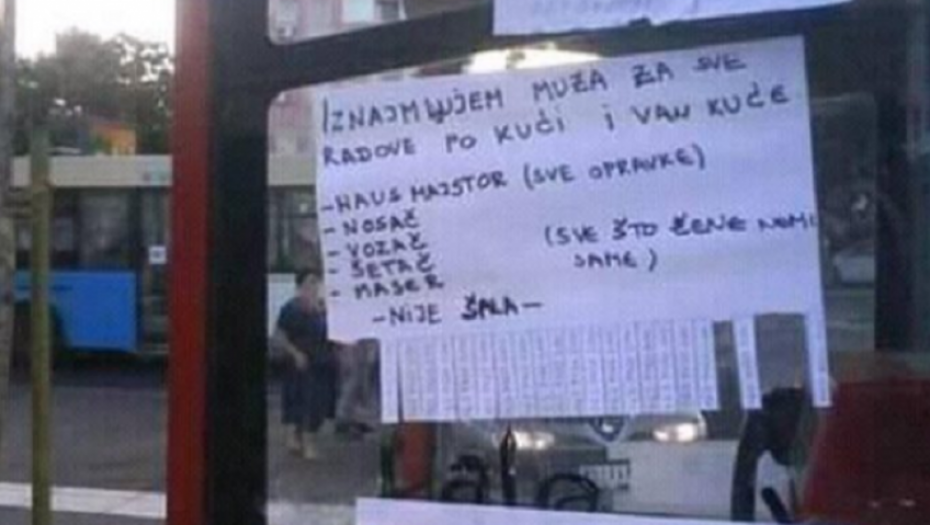 IZNAJMLJUJEM MUŽA ZA SVE
RADOVE PO KUĆI i VAN KUĆE
-HAUS MAJSTOR (SVE OPRAVKE)
- NOSAČ
- VOZAČ
- ŠETAČ
- MASER
(SVE ŠTO ŽENE
SAME)
-NIJE ŠALA-